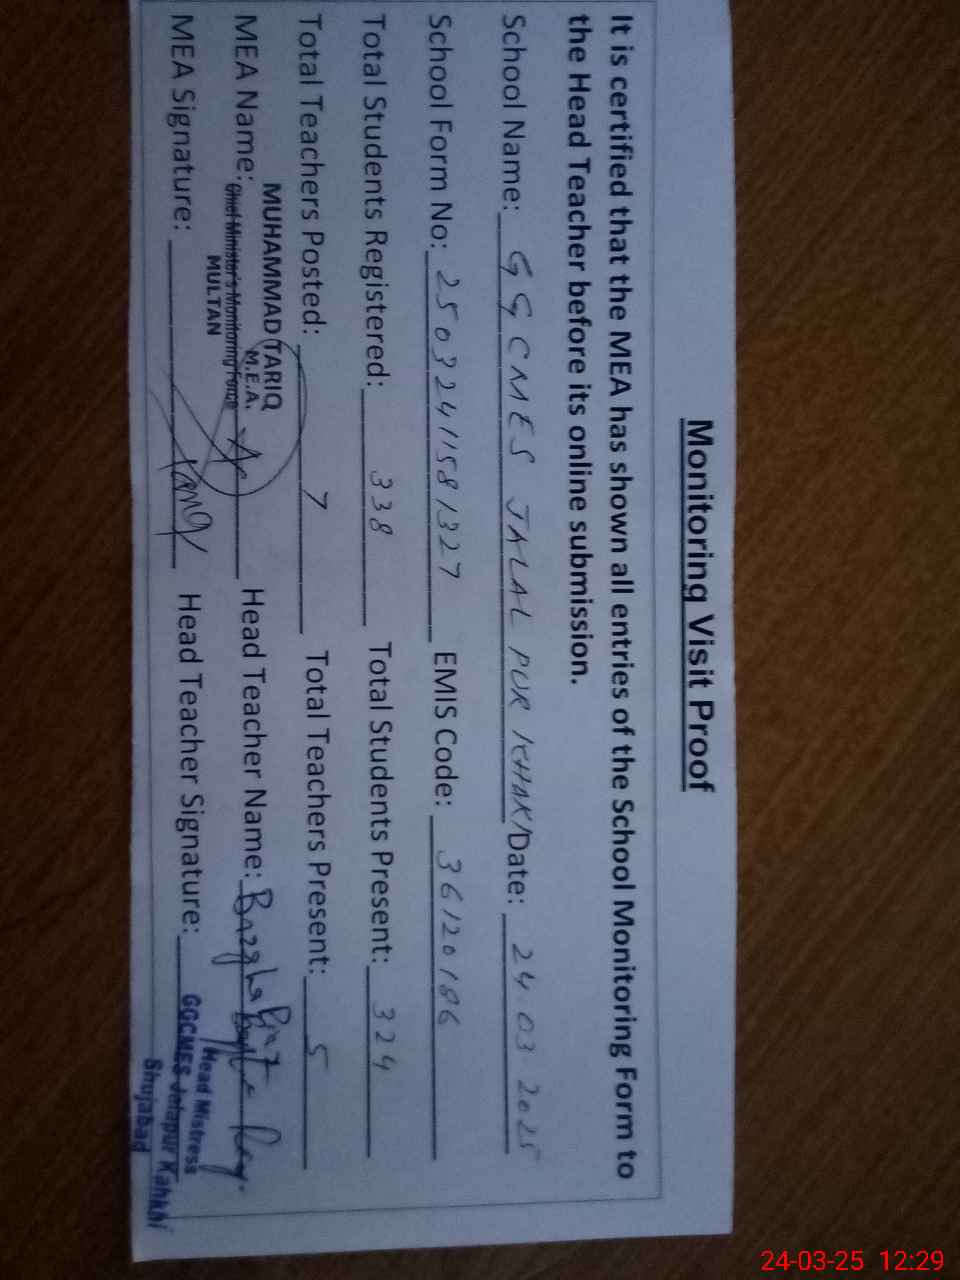 Monitoring Visit Proof
It is certified that the MEA has shown all entries of the School Monitoring Form to
the Head Teacher before its online submission.
School Name: GGCMES JALAL PUR KHAKI Date: 24.03.2025
School Form No: 25032411581327 EMIS Code: 36120186
Total Students Registered: 338 Total Students Present: 324
Total Teachers Posted: 7 Total Teachers Present: 5
MUHAMMAD TARIQ
M.E.A.
MEA Name: Chief Minister's Monitoring Force Head Teacher Name:
MULTAN
MEA Signature: Head Teacher Signature:
Head Mistress
GGCMES Jalapur Kahkhi
Shujabad
24-03-25 12:29